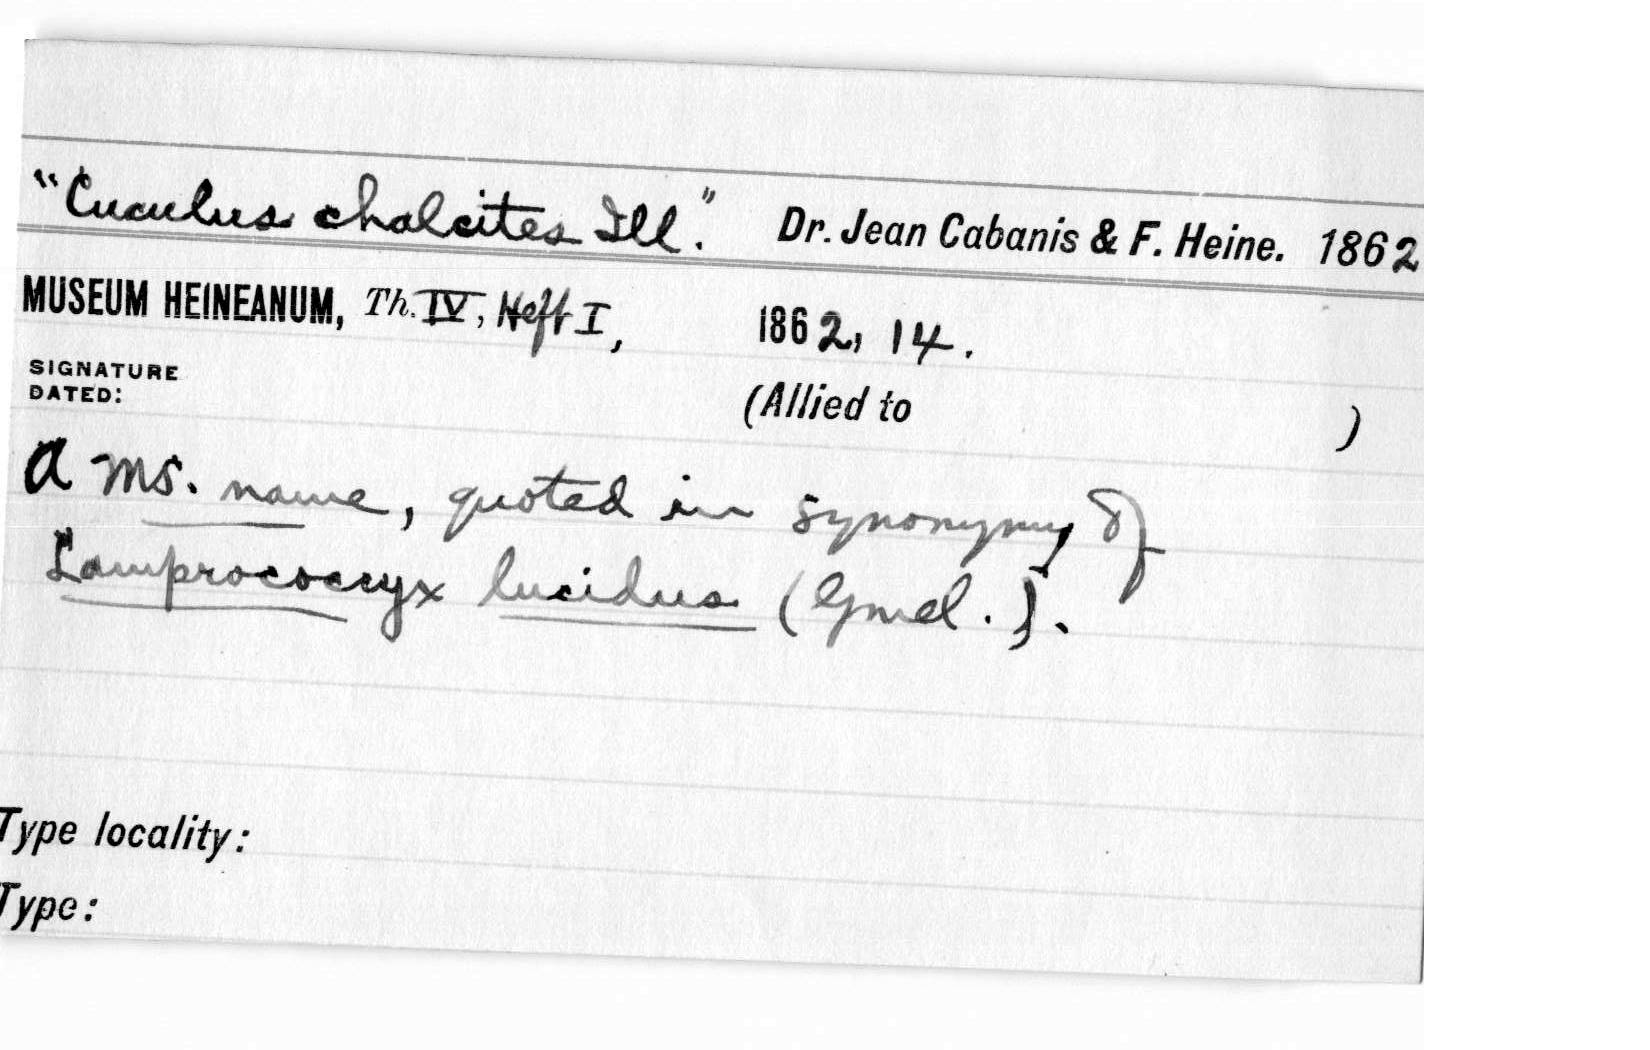 "Cuculus chalcites Ill." Dr. Jean Cabanis & F. Heine. 1862
MUSEUM HEINEANUM, Th. IV, Heft I, 1862, 14.
SIGNATURE
DATED:
(Allied to )
A MS. name, quoted in synonymy of
Lamprococcyx lucidus (Gmel.).
Type locality:
Type: